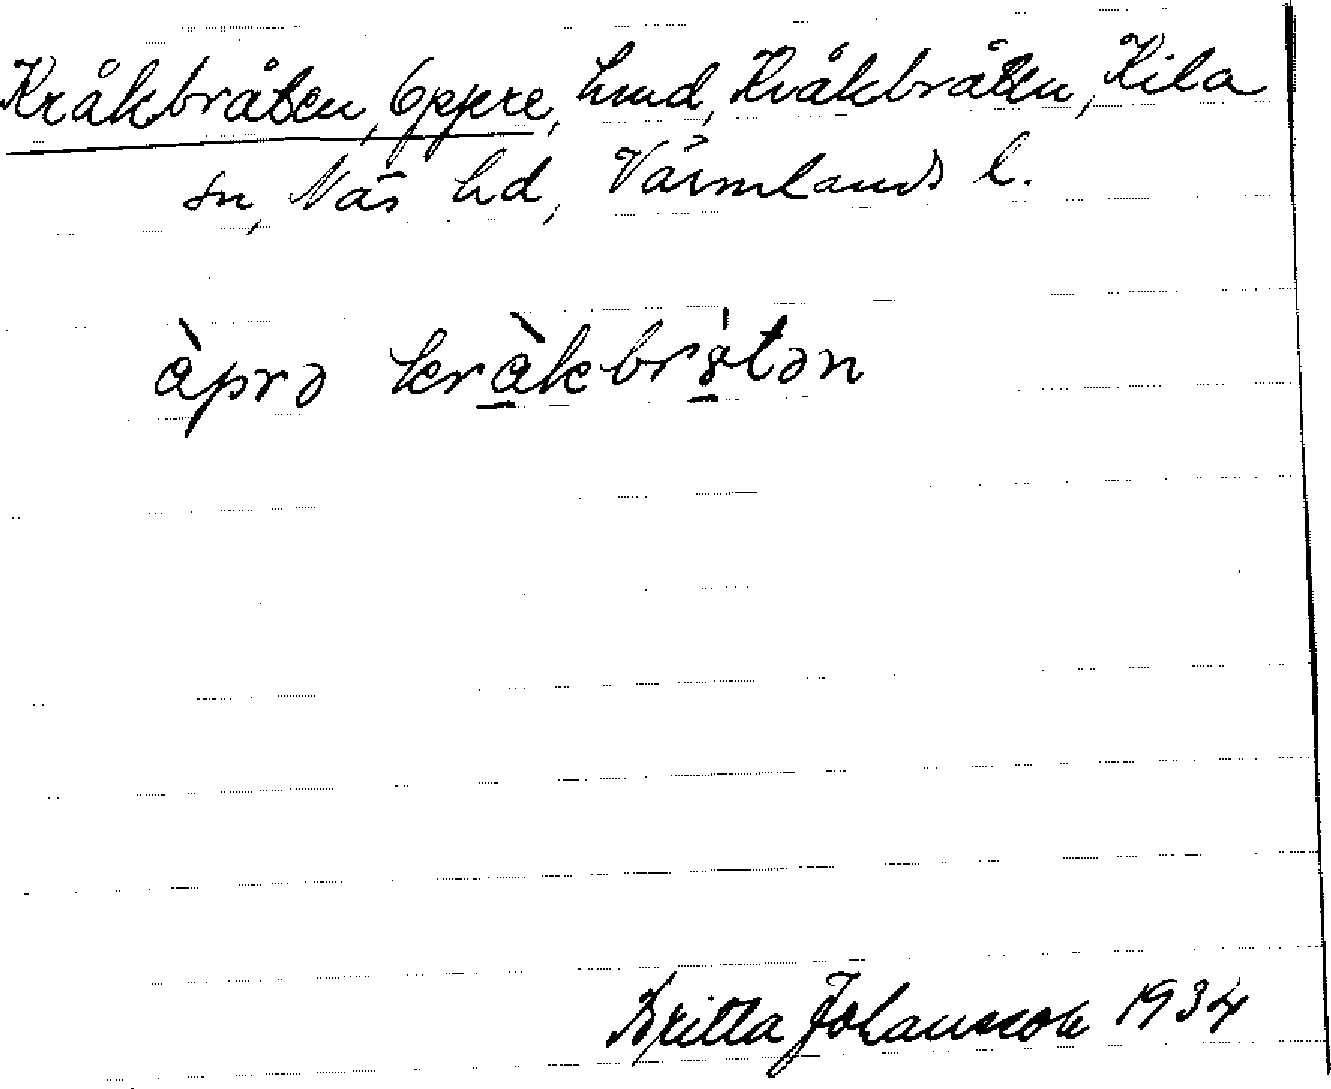 Kråkbråten, Öppre, hmd, Kråkbråten, Kila
sn, Näs hd, Värmlands l.
àprə kràkbrátən
Britta Johansson 1934